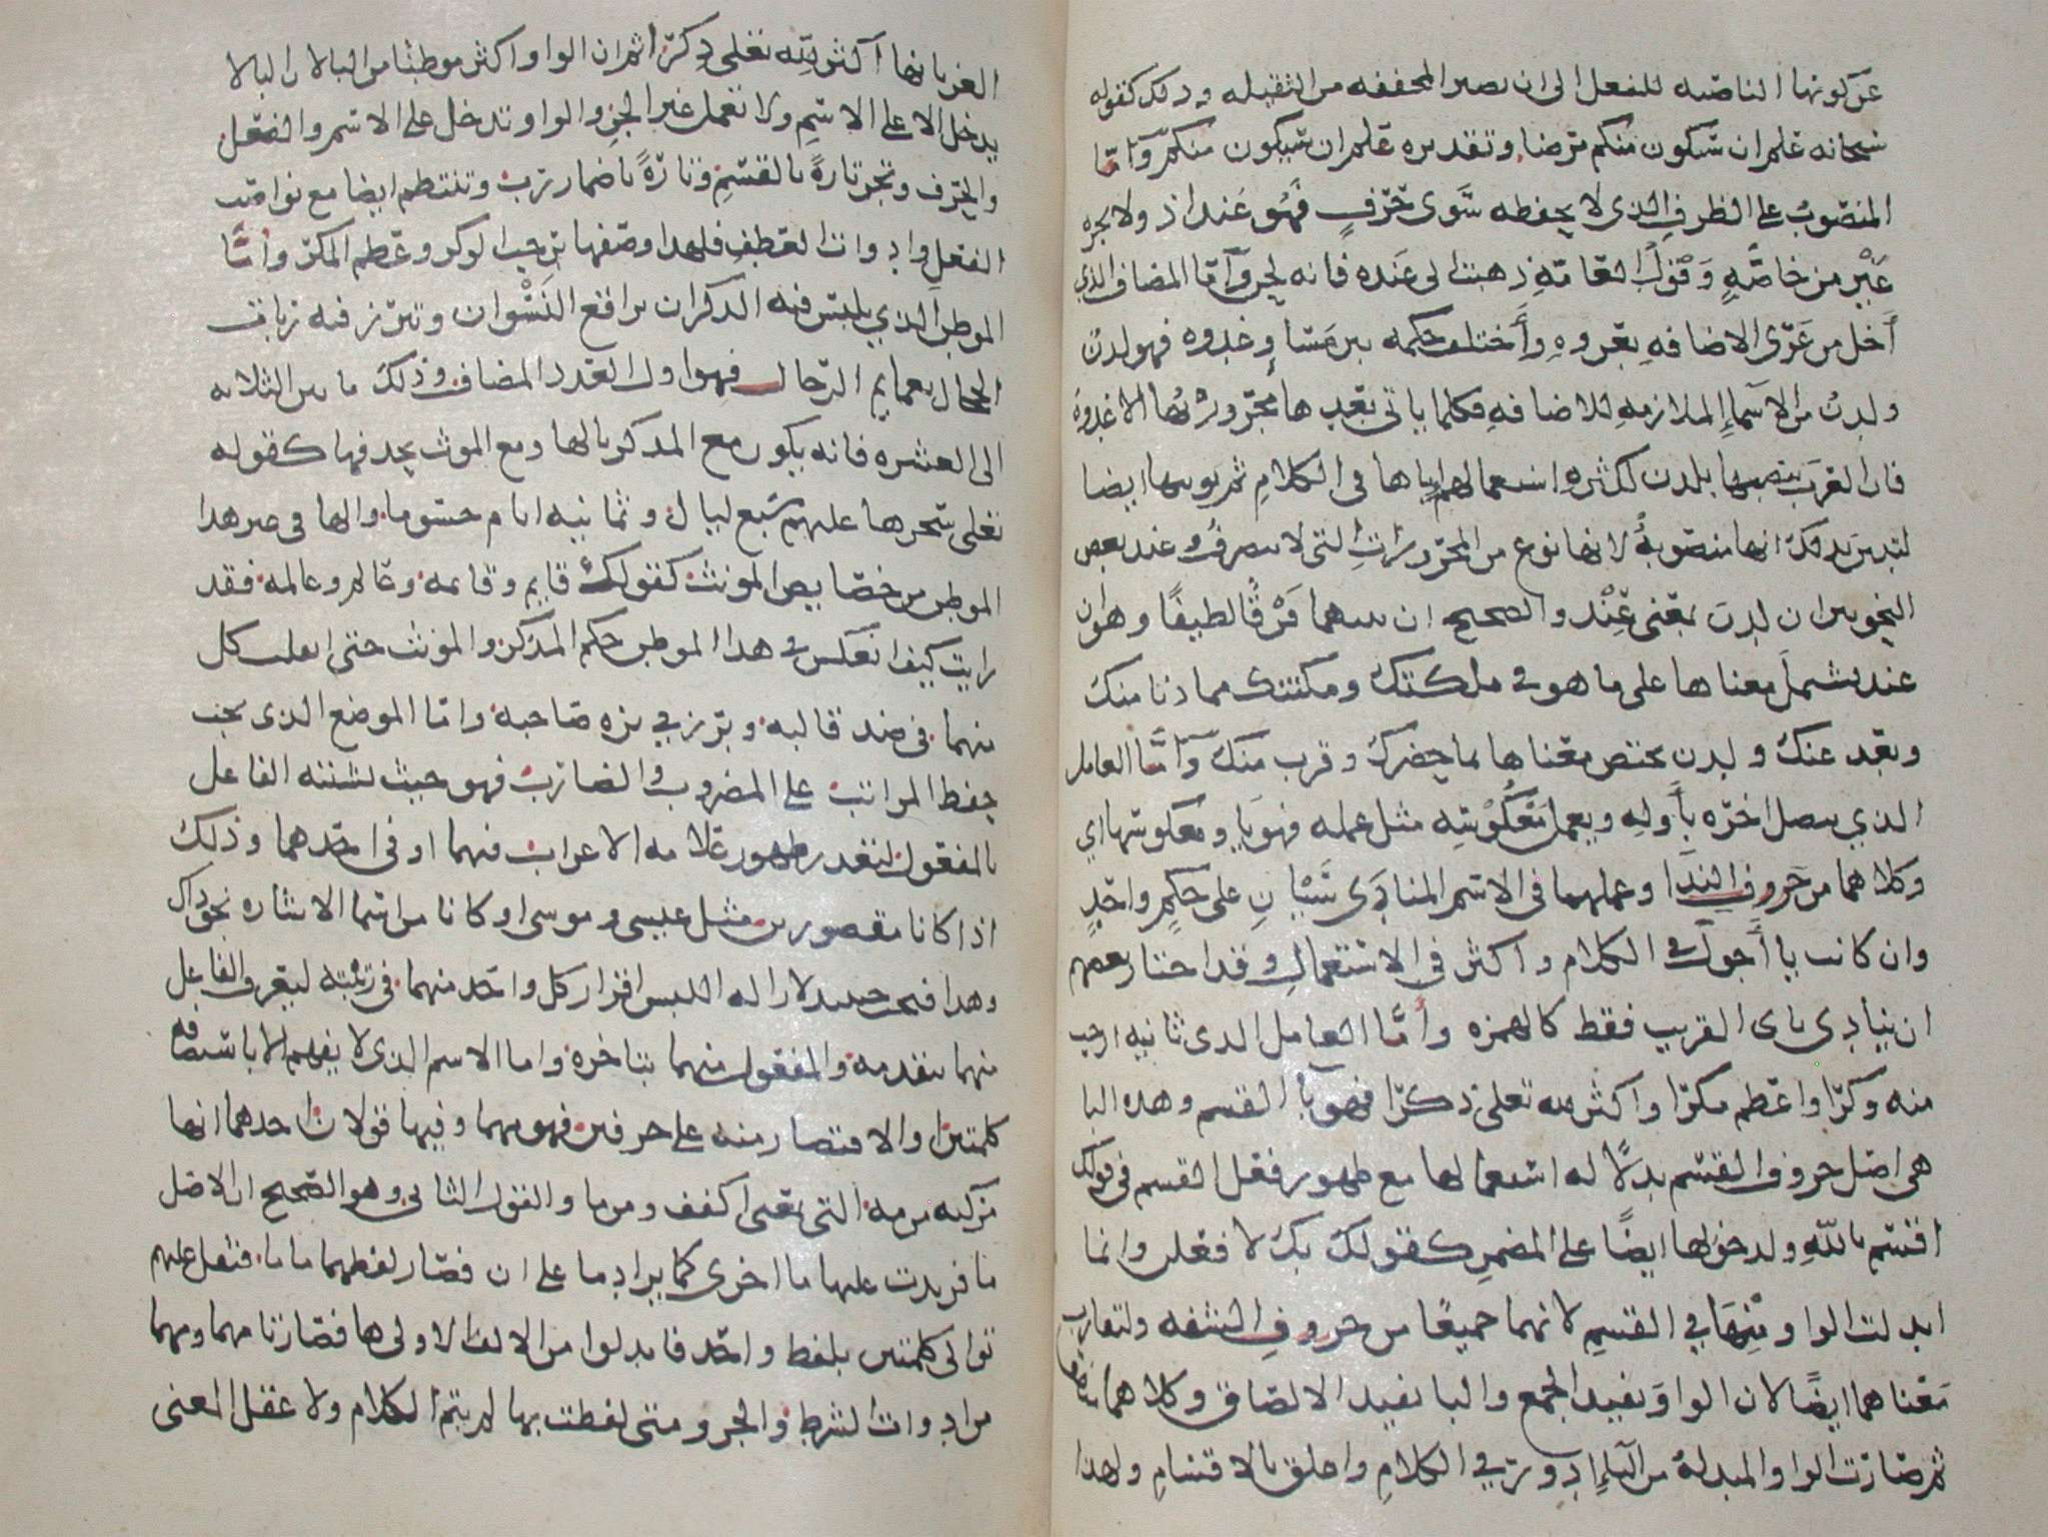 عن كونها الناصبه للفعل الى ان تصير المخففه من الثقيله وذلك كقوله
سبحانه علم ان سيكون منكم مرضا وتقديره علم انه سيكون منكم وأمّا
المنصوب على الظرف الذى لا يخفضه سوى حرف فهو عند اذ ولا يجره
غير من خاصّه وقول العامّه ذهبت الى عنده فانه لحن وأمّا المضاف الذي
أخل من عرى الاضافه بعروه وأختلف حكمه بين مسا وغدوه فهو لدن
ولدن من الأسماء الملازمه للاضافه فكلما ياتى بعدها مجرور بها الا غدوه
فان العرب نصبها بلدن لكثره استعمالهم اياها فى الكلام ثم نونها ايضا
ليتبين بذلك انها منصوبه لا انها نوع من المجرورات التى لا ينصرف وعند بعض
النحويين ان لدن بمعنى عند والصحيح ان بينهما فرقًا لطيفًا وهو ان
عند يشمل معناها على ما هو في ملكتك ومكنتك مما دنا منك
وبعد عنك ولدن يختص معناها بما حضرك وقرب منك وأمّا العامل
الذي يتصل اخره بأوله ويعمل معكوسه مثل عمله فهو يا ومعكوسها اي
وكلاهما من حروف الندا وعملهما فى الاسم المنادى سيّان على حكم واحد
وان كانت يا أجول في الكلام واكثر فى الاستعمال وقد اختار بعضهم
ان ينادى باى القريب فقط كالهمزه وأمّا العامل الذى نائبه ارحب
منه وكرًا واعظم مكرًا واكثر لله تعلى ذكرًا فهو با القسم وهذه البا
هى اصل حروف القسم بدلاله استعمالها مع ظهور فعل القسم فى قولك
اقسم بالله ولدخولها ايضًا على المضمر كقولك بك لافعلن وانما
ابدلت الواو منها في القسم لانهما جميعًا من حروف الشفه ولتقارب
معناهما ايضًا لان الواو تفيد الجمع والبا تفيد الالصاق وكلاهما
ثم صارت الواو المبدله من الباء ادور في الكلام واعلق بالاقسام ولهذا
الغز بانها أكثر لله تعلى ذكرًا ثم ان الواو اكثر موطنا من البا لان البا لا
يدخل الا على الاسم ولا تعمل غير الجر والواو تدخل على الاسم والفعل
والحرف وتجر تارةً بالقسم وتارةً باضمار رب وتنتظم ايضا مع نواصب
الفعل وادوات العطف فلهذا وصفها برحب الوكر وعظم المكر وأمّا
الموطن الذي يلبس فيه الذكران براقع النسوان وتبرز فيه ربات
الحجال بعمايم الرجال فهو اول العدد المضاف وذلك ما بين الثلاثه
الى العشره فانه يكون مع المذكر بالها ومع المونث بحذفها كقوله
تعلى سخرها عليهم سبع ليال وثمانيه ايام حسوما والها فى غير هذا
الموطن من خصايص المونث كقولك قايم وقايمه وعالم وعالمه فقد
رايت كيف انعكس في هذا الموطن حكم المذكر والمونث حتى انقلب كل
منهما فى ضد قالبه وبرز في بزه صاحبه وامّا الموضع الذى يجب
حفظ المراتب على المضروب والضارب فهو حيث يشتبه الفاعل
بالمفعول لتعذر ظهور علامه الاعراب فيهما او فى احدهما وذلك
اذا كانا مقصورين مثل عيسى وموسى او كانا من اسما الاشاره نحو ذاك
وهذا فيجب حينيذ لازاله اللبس اقرار كل واحد منهما فى رتبته ليعرف الفاعل
منهما بتقدمه والمفعول منهما بتاخره واما الاسم الذى لا يفهم الا باستضافه
كلمتين او الاقتصار منه على حرفين فهو مهما وفيها قولان احدهما انها
مركبه من مه التى بمعنى اكفف ومن ما والقول الثانى وهو الصحيح ان الاصل
ما فزيدت عليها ما اخرى كما يزاد ما على ان فصار لفظهما ما ما فثقل عليهم
توالى كلمتين بلفظ واحد فابدلوا من الالف الاولى ها فصارتا مهما ومهما
من ادوات الشرط والجر ومتى لفظت بها لم يتم الكلام ولا عقل المعنى